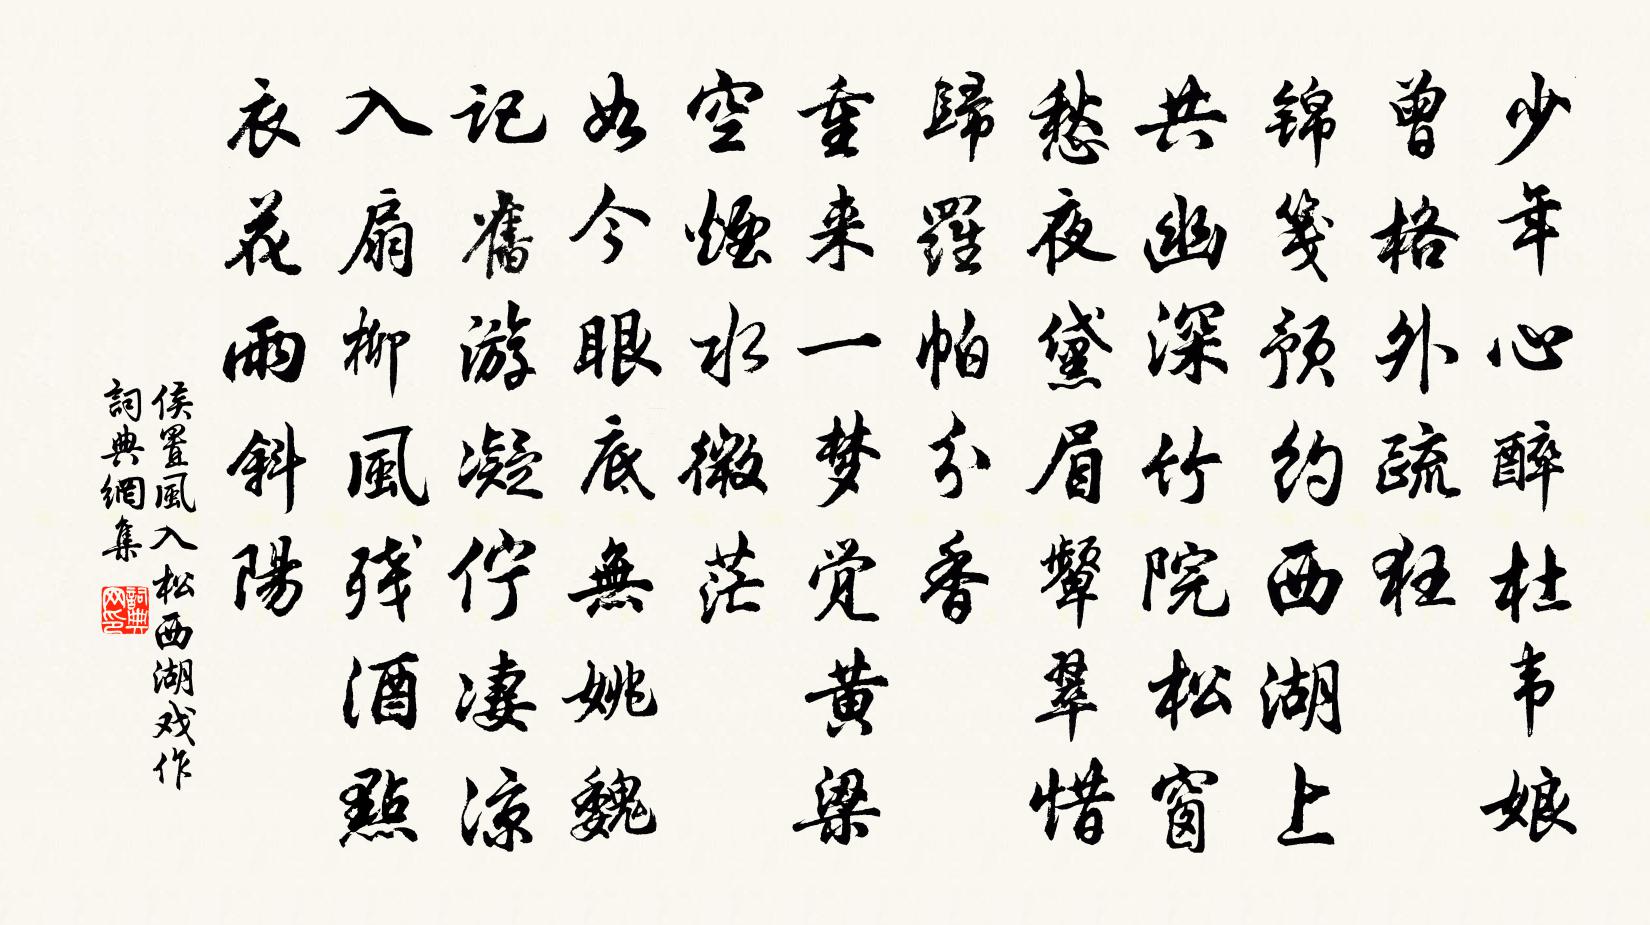 少年心醉杜韦娘
曾格外疏狂
锦笺预约西湖上
共幽深竹院松窗
愁夜黛眉颦翠惜
歸羅帕分香
重来一梦觉黄粱
空煙水微茫
如今眼底無姚魏
记舊游凝佇凄凉
入扇柳風残酒點
衣花雨斜陽
侯置風入松西湖戏作
詞典網集
詞典网印